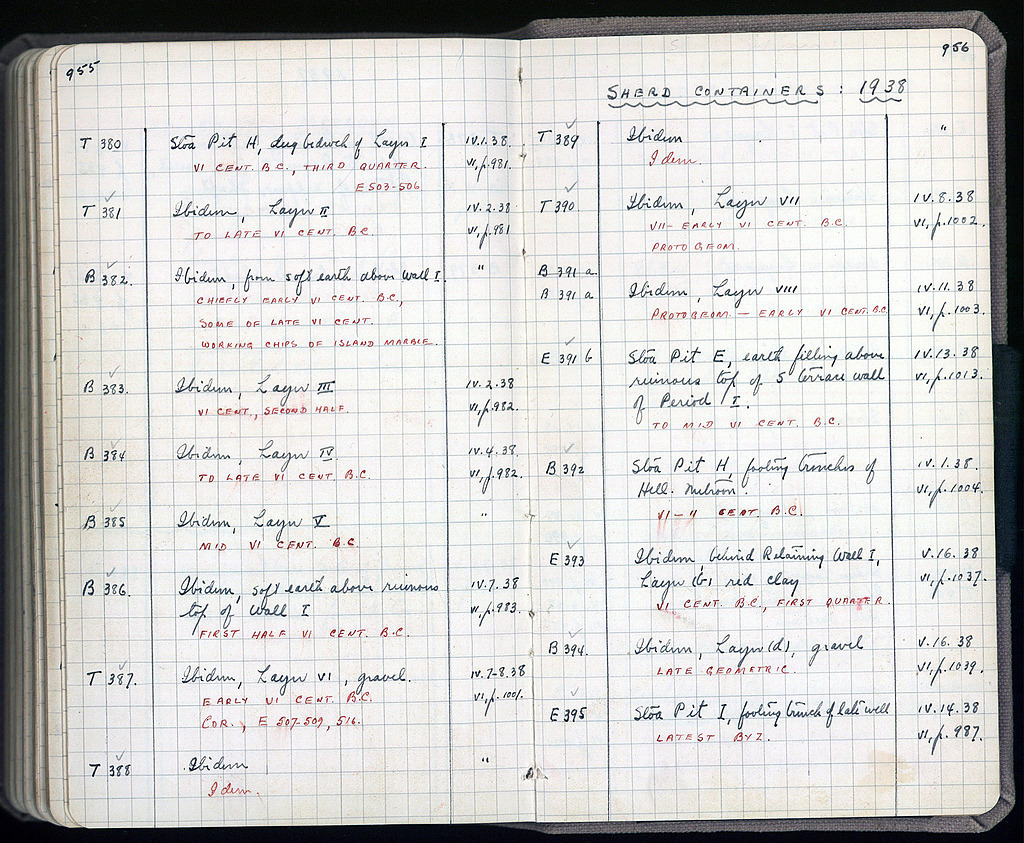 955
T 380 Stoa Pit H, dug bedrock of Layer I IV.1.38.
VI CENT. B.C., THIRD QUARTER. VI, p. 981.
E 503-506
T 381 Ibidem, Layer II IV.2.38
TO LATE VI CENT. B.C. VI, p. 981
B 382. Ibidem, from soft earth above Wall I. "
CHIEFLY EARLY VI CENT. B.C.,
SOME OF LATE VI CENT.
WORKING CHIPS OF ISLAND MARBLE.
B 383. Ibidem, Layer III IV.2.38
VI CENT., SECOND HALF. VI, p. 982.
B 384 Ibidem, Layer IV IV.4.38.
TO LATE VI CENT. B.C. VI, p. 982.
B 385 Ibidem, Layer V "
MID VI CENT. B.C.
B 386. Ibidem, soft earth above ruinous IV.7.38
top of Wall I VI, p. 983.
FIRST HALF VI CENT. B.C.
T 387. Ibidem, Layer VI, gravel. IV.7-8.38
EARLY VI CENT. B.C. VI, p. 1001.
COR., E 507-509, 516.
T 388 Ibidem "
Idem.
956
SHERD CONTAINERS : 1938
T 389 Ibidem "
Idem.
T 390. Ibidem, Layer VII IV.8.38
VII- EARLY VI CENT. B.C. VI, p. 1002.
PROTOGEOM.
B 391 a
B 391 a Ibidem, Layer VIII IV.11.38
PROTOGEOM. — EARLY VI CENT. B.C. VI, p. 1003.
E 391 b Stoa Pit E, earth filling above IV.13.38
ruinous top of S terrace wall VI, p. 1013.
of Period I.
TO MID VI CENT. B.C.
B 392 Stoa Pit H, footing trenches of IV.1.38.
Hell. Metroon. VI, p. 1004.
VI-II CENT. B.C.
E 393 Ibidem, behind Retaining Wall I, V.16.38
Layer (b), red clay VI, p. 1037.
VI CENT. B.C., FIRST QUARTER.
B 394. Ibidem, Layer (d), gravel V.16.38
LATE GEOMETRIC. VI, p. 1039.
E 395 Stoa Pit I, footing trench of late well IV.14.38
LATEST BYZ. VI, p. 987.